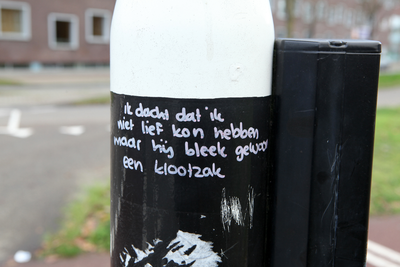 ik dacht dat ik
niet lief kon hebben
maar hij bleek gewoon
een klootzak